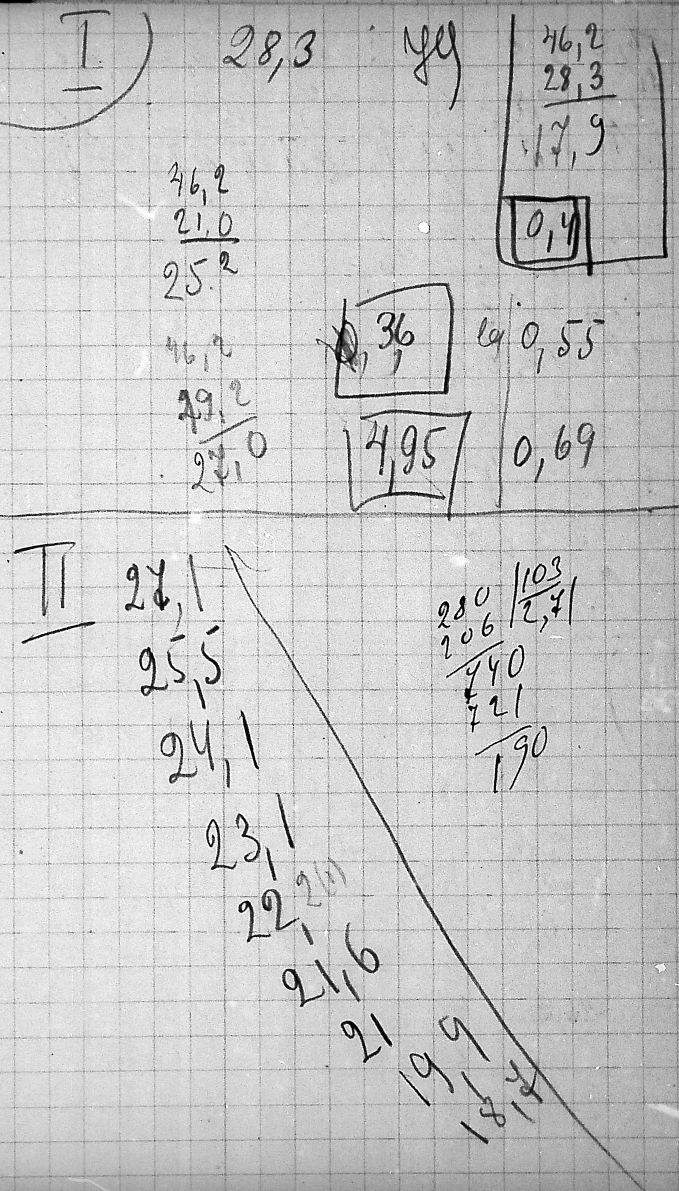 I) 28,3
46,2
28,3
17,9
0,4
46,2
21,0
25,2
46,2
19,2
27,0
0,36
0,55
4,95
0,69
II 27,1
25,5
24,1
23,1
22,2(1)
21,6
21
19,9
18,7
280 |103
206 2,7
740
721
190